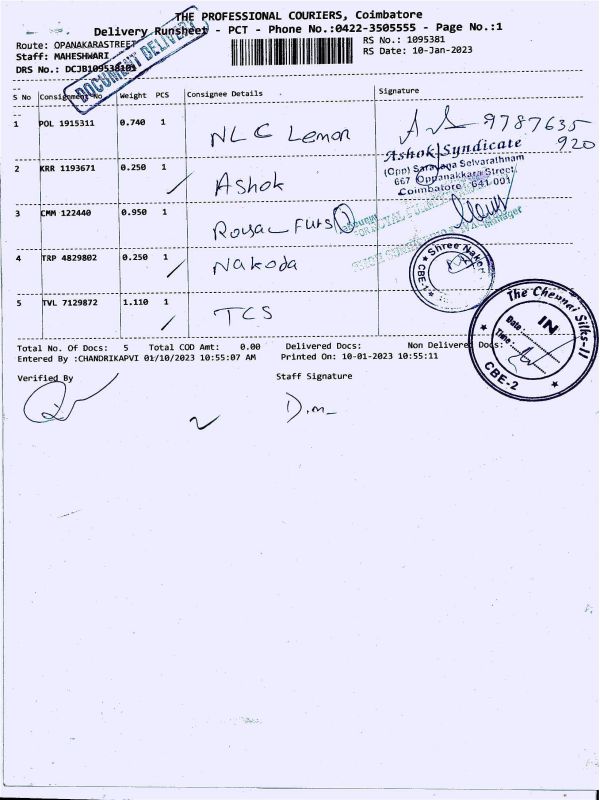 THE PROFESSIONAL COURIERS, Coimbatore
Delivery Runsheet - PCT - Phone No.:0422-3505555 - Page No.:1
Route: OPANAKARASTREET
RS No.: 1095381
Staff: MAHESHWARI
RS Date: 10-Jan-2023
DRS No.: DCJB109538101
DOCUMENT DELIVERY
S No Consignment No. Weight PCS Consignee Details Signature
1 POL 1915311 0.740 1 NLC Lemon 9787635
920
Ashok Syndicate
(Opp) Saravana Selvarathnam
667 Oppanakkara Street
Coimbatore - 641 001
2 KRR 1193671 0.250 1 Ashok
3 CMM 122440 0.950 1
Manager
4 TRP 4829802 0.250 1 Nakoda
Shree Nakoda
CBE-1
5 TVL 7129872 1.110 1 TCS
The Chennai Silks-II
IN
Date:
Time:
CBE-2
Total No. Of Docs: 5 Total COD Amt: 0.00 Delivered Docs: Non Delivered Docs:
Entered By :CHANDRIKAPVI 01/10/2023 10:55:07 AM Printed On: 10-01-2023 10:55:11
Verified By Staff Signature